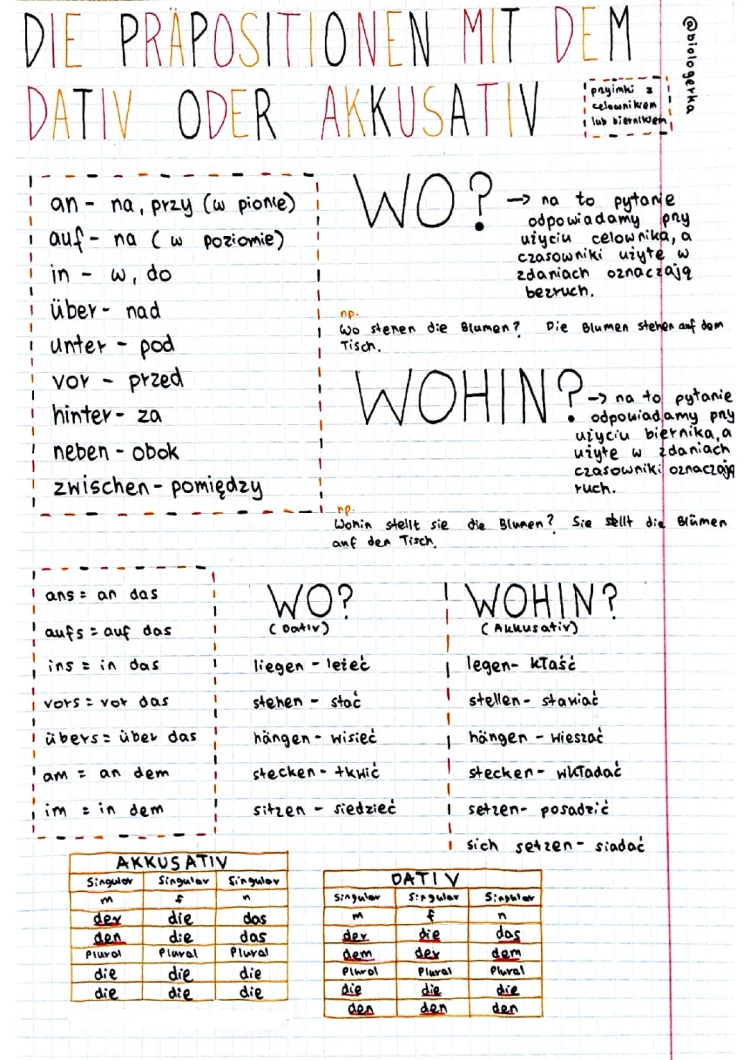 DIE PRÄPOSITIONEN MIT DEM
DATIV ODER AKKUSATIV
pnyimki z
celownikiem
lub biernikiem
@biologerka
an - na, przy (w pionie)
auf - na (w poziomie)
in - w, do
über - nad
unter - pod
vor - przed
hinter - za
neben - obok
zwischen - pomiędzy
WO? → na to pytanie
odpowiadamy pny
użyciu celownika, a
czasowniki użyte w
zdaniach oznaczają
bezruch.
np.
Wo stehen die Blumen? Die Blumen stehen auf dem
Tisch.
WOHIN? → na to pytanie
odpowiadamy pny
użyciu biernika, a
użyte w zdaniach
czasowniki oznaczają
ruch.
np.
Wohin stellt sie die Blumen? Sie stellt die Blümen
auf den Tisch.
ans = an das
aufs = auf das
ins = in das
vors = vor das
übers = über das
am = an dem
im = in dem
WO?
(Dativ)
liegen - leżeć
stehen - stać
hängen - wisieć
stecken - tkwić
sitzen - siedzieć
WOHIN?
(Akkusativ)
legen - kłaść
stellen - stawiać
hängen - wieszać
stecken - wkładać
setzen - posadzić
sich setzen - siadać
AKKUSATIV
Singular Singular Singular
m f n
der die das
den die das
Plural Plural Plural
die die die
die die die
DATIV
Singular Singular Singular
m f n
der die das
dem der dem
Plural Plural Plural
die die die
den den den